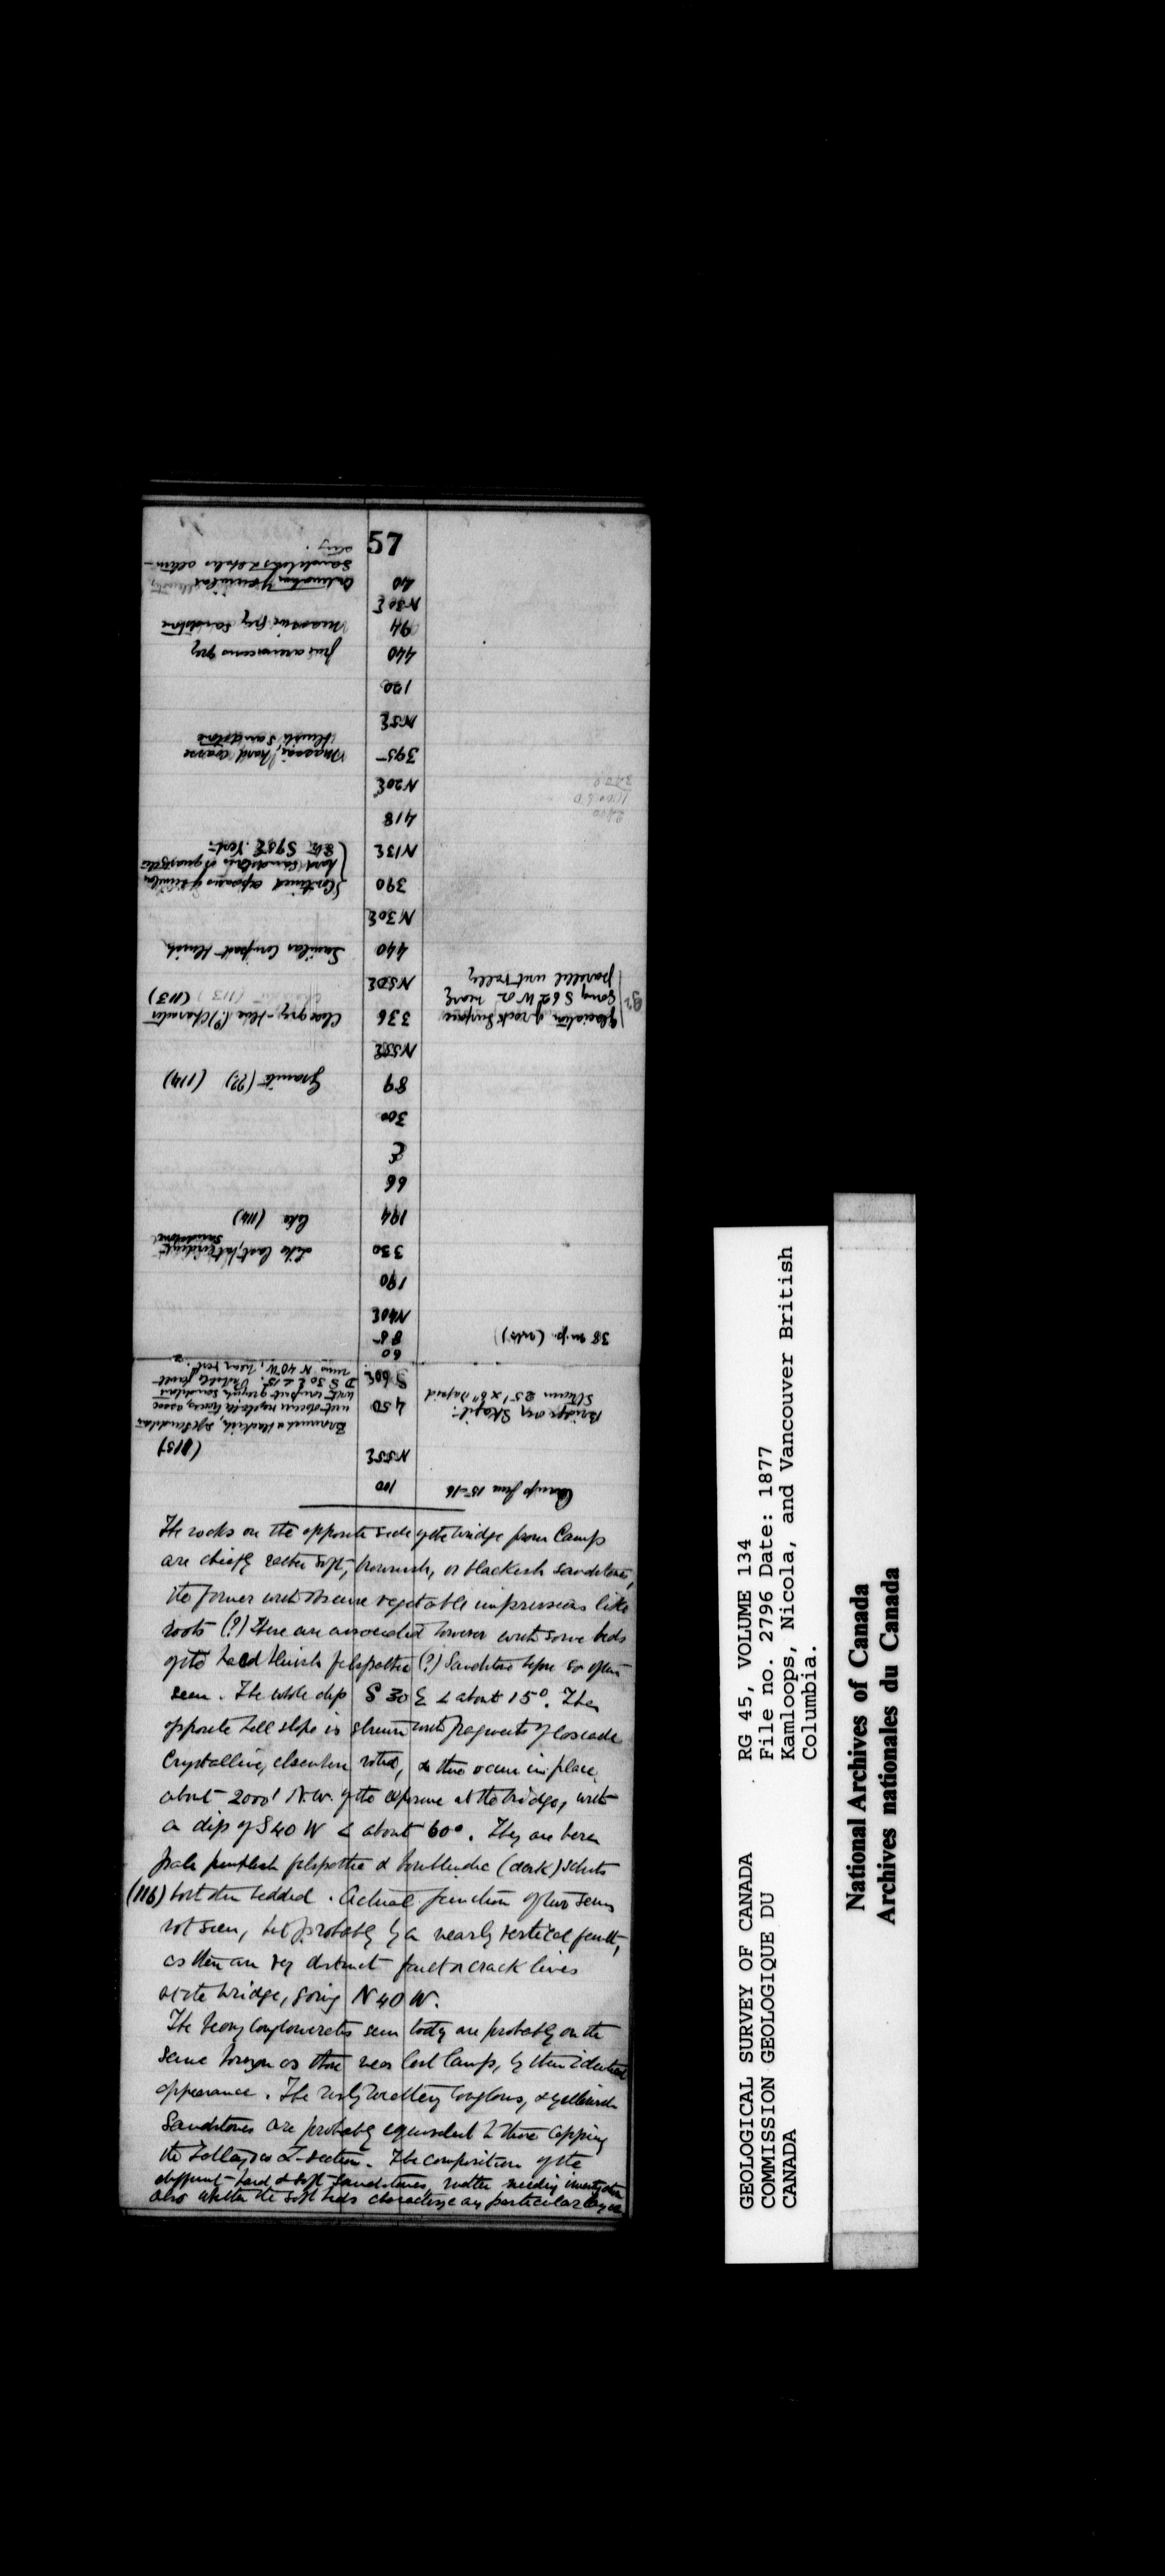 57
40
N30E
94 Massive grey sandstone
440 fine arenaceous grey
120
N5E
395 Massive, hard coarse
bluish sandstone
N20E
418
N13E
390
N30E
440 Similar compact bluish
N50E
336 Clear grey-blue (?) Character (113)
Glaciation of rock surface
going S 62 W or nearly
parallel with valley
N55E
89 Granite (??) (114)
300
E
66
194 like (114)
330 Like last, but evident
sandstone
190
N40E
85 38 m.p. (rds)
60
S60E
450 Bridge over Skagit
Stream 25' x 6" rapid
Brownish & blackish, soft sandstone
with obscure vegetable traces, assoc
with compact greyish sandstone
D S 30 E < 15°. Probable fault
runs N 40 W, near vert.
N55E (115)
100 Camp June 15-16
The rocks on the opposite side of the bridge from Camp
are chiefly rather soft, brownish, or blackish sandstones,
the former with obscure vegetable impressions like
roots (?) These are associated however with some beds
of the hard bluish felspathic (?) Sandstone before so often
seen. The whole dip S 30 E < about 15°. The
opposite hill slope is strewn with fragments of Cascade
Crystalline, elsewhere noted, & these occur in place
about 2000' N.W. of the exposure at the bridge, with
a dip of S 40 W < about 60°. They are here
pale purplish felspathic & hornblendic (dark) schists
(116) but often bedded. Actual junction of two series
not seen, but probably by a nearly vertical fault,
as there are very distinct fault or crack lines
at the bridge, going N 40 W.
The heavy conglomerates seen today are probably on the
same horizon as those near last Camp, by their identical
appearance. The rusty weathering conglom, & yellowish
Sandstones are probably equivalent to those capping
the section. The composition of the
different hard & soft sandstones, matter needing investigation
also whether the soft beds characterize any particular
GEOLOGICAL SURVEY OF CANADA
COMMISSION GEOLOGIQUE DU
CANADA
RG 45, VOLUME 134
File no. 2796 Date: 1877
Kamloops, Nicola, and Vancouver British
Columbia.
National Archives of Canada
Archives nationales du Canada